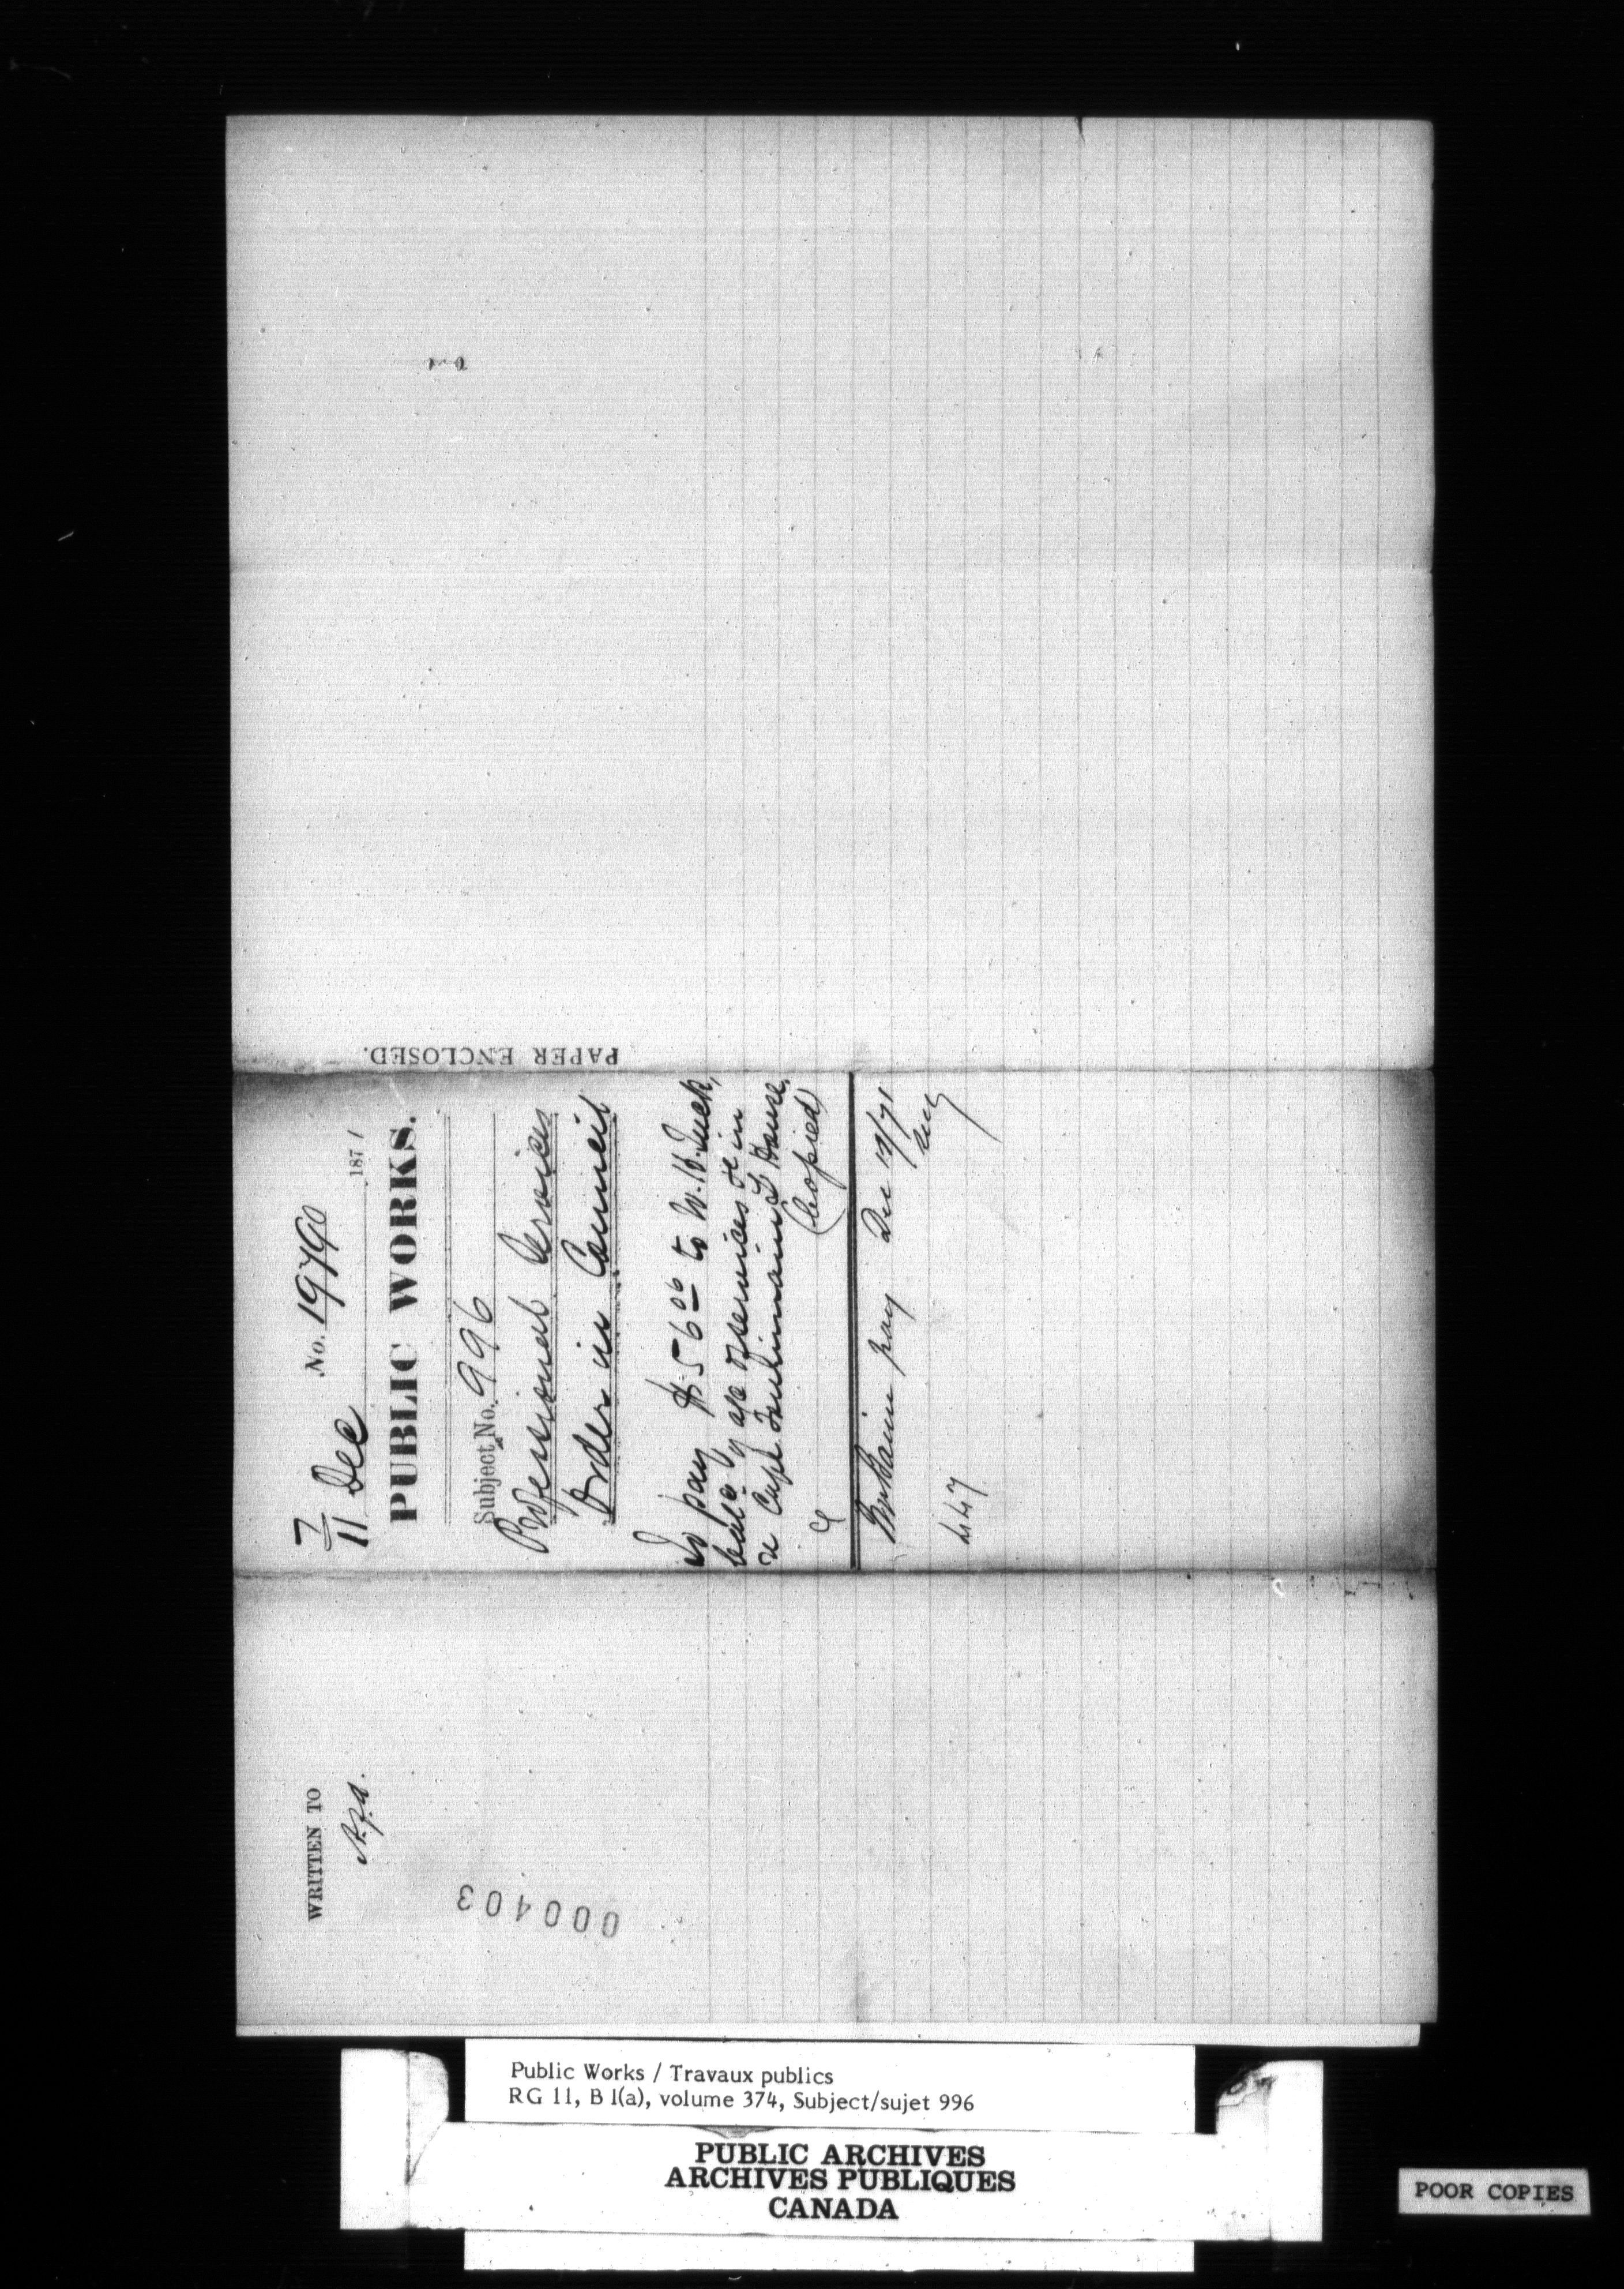 7/11 Dec No. 19790
187 1
PUBLIC WORKS.
Subject No. 996
Professional Services
Order in Council
To pay $56 00 to W. B.
balce of a/c services &c in
re Capt House.
(Copied)
pay Dec 12/71
447
PAPER ENCLOSED.
WRITTEN TO
000403
Public Works / Travaux publics
RG 11, B 1(a), volume 374, Subject/sujet 996
PUBLIC ARCHIVES
ARCHIVES PUBLIQUES
CANADA
POOR COPIES